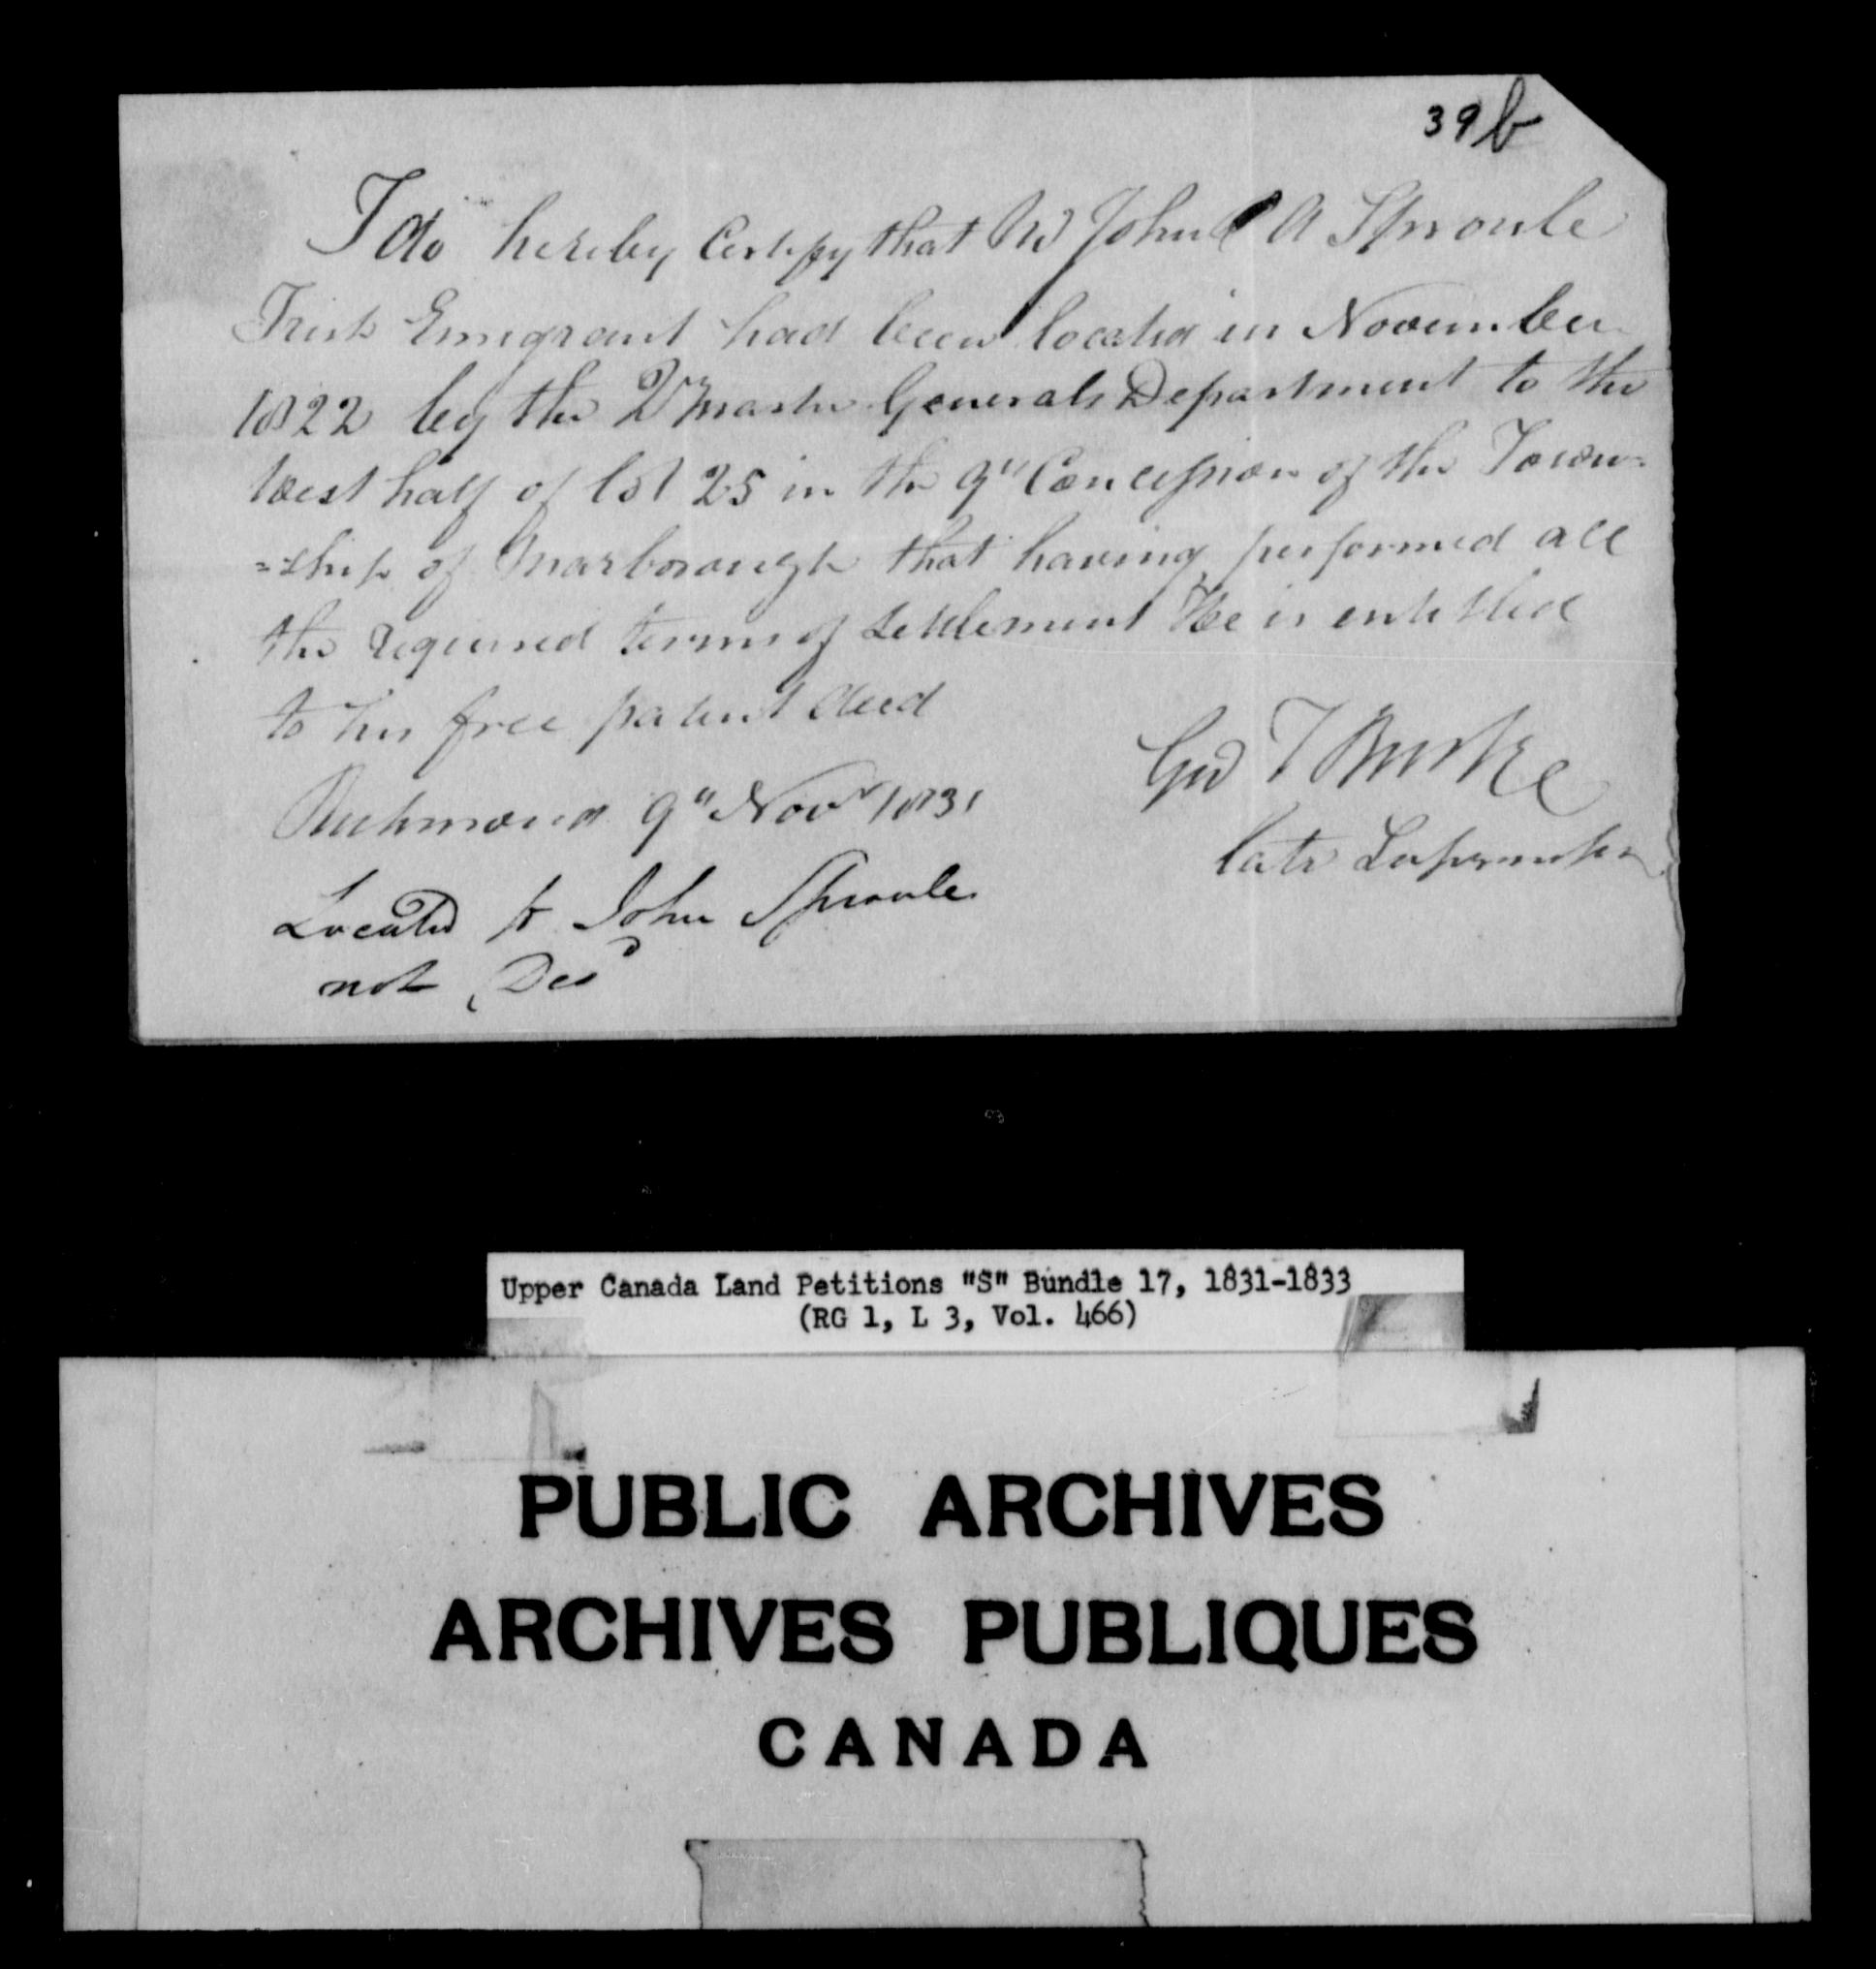 39b
I do hereby Certify that Mr John A Sproule
Irish Emigrant had been located in November
1822 by the Qr Master Generals Department to the
West half of lot 25 in the 9th Concession of the Town=
=ship of Marborough that having performed all
the required terms of Settlement He is entitled
to his free patent deed
Richmond 9th Novr 1831
Geo T Burke
late Superinten
Located to John Sproule
not Desd
Upper Canada Land Petitions "S" Bundle 17, 1831-1833
(RG 1, L 3, Vol. 466)
PUBLIC ARCHIVES
ARCHIVES PUBLIQUES
CANADA